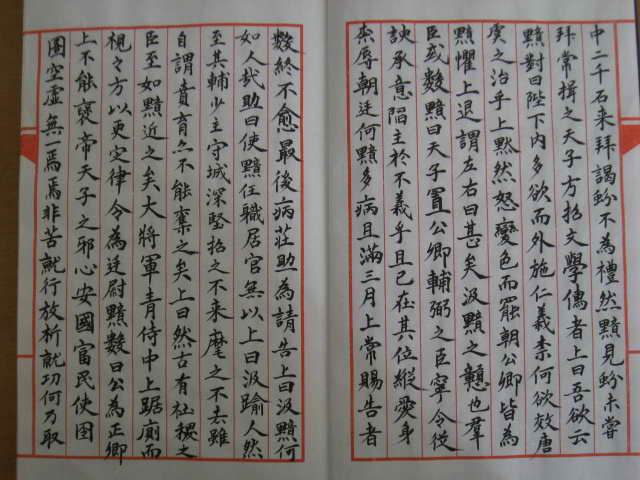 中二千石来拜謁蚡不為禮然黯見蚡未嘗
拜常揖之天子方招文學儒者上曰吾欲云
黯對曰陛下内多欲而外施仁義柰何欲效唐
虞之治乎上黙然怒變色而罷朝公卿皆為
黯懼上退謂左右曰甚矣汲黯之戇也羣
臣或數黯曰天子置公卿輔弼之臣寧令從
諛承意陥主於不義乎且已在其位縱愛身
柰辱朝廷何黯多病且滿三月上常賜告者
數終不愈最後病莊助為請告上曰汲黯何
如人哉助曰使黯任職居官無以上曰汲踰人然
至其輔少主守城深堅招之不来麾之不去雖
自謂賁育亦不能棄之矣上曰然古有社稷之
臣至如黯近之矣大將軍青侍中上踞廁而
視々方以更定律令為廷尉黯數曰公為正卿
上不能襃帝天子之邪心安國富民使囹
圄空虛無一焉焉非苦就行放析就功何乃取